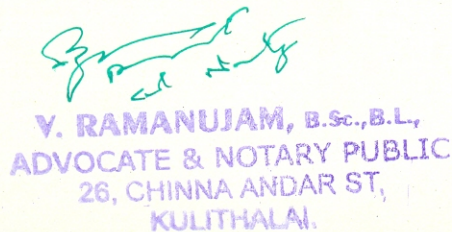 V. RAMANUJAM, B.Sc.,B.L.,
ADVOCATE & NOTARY PUBLIC
26, CHINNA ANDAR ST,
KULITHALAI.